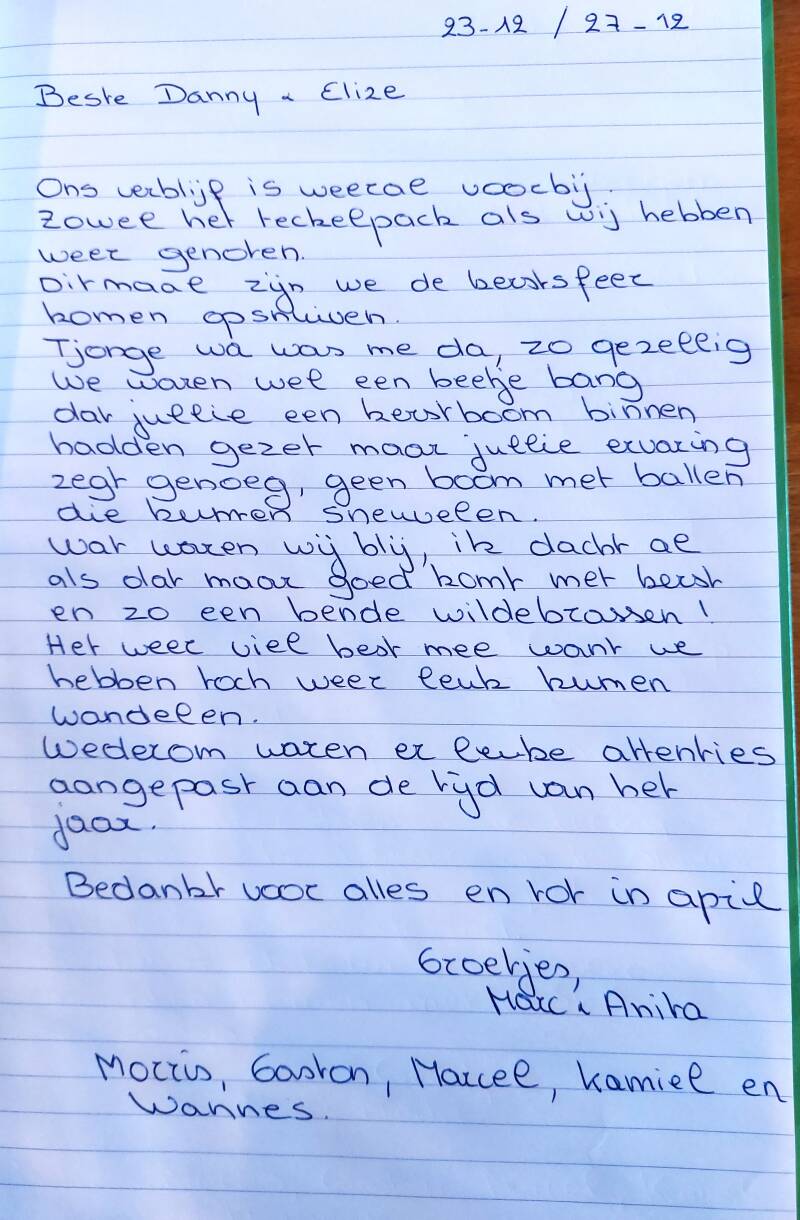 23-12 / 27-12
Beste Danny & Elize
Ons verblijf is weeral voorbij.
Zowel het teckelpack als wij hebben
weer genoten.
Ditmaal zijn we de kerstsfeer
komen opsnuiven.
Tjonge wa was me da, zo gezellig
We waren wel een beetje bang
dat jullie een kerstboom binnen
hadden gezet maar jullie ervaring
zegt genoeg, geen boom met ballen
die kunnen sneuvelen.
Wat waren wij blij, ik dacht al
als dat maar goed komt met kerst
en zo een bende wildebrassen!
Het weer viel best mee want we
hebben toch weer leuk kunnen
wandelen.
Wederom waren er leuke attenties
aangepast aan de tijd van het
jaar.
Bedankt voor alles en tot in april
Groetjes,
Marc & Anita
Morris, Gaston, Marcel, Kamiel en
Wannes.